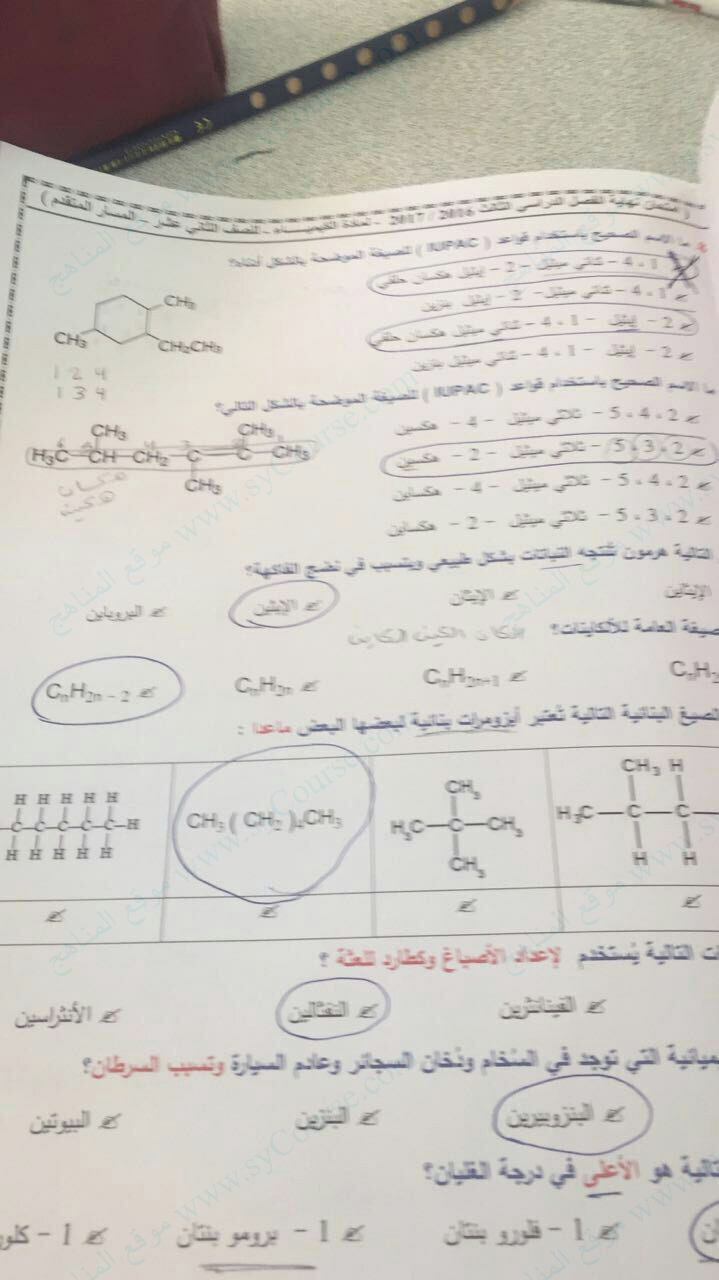 ( امتحان نهاية الفصل الدراسي الثالث 2016 / 2017 - لمادة الكيميـــاء - للصف الثاني عشر - المسار المتقدم )
ما الاسم الصحيح باستخدام قواعد ( IUPAC ) للصيغة الموضحة بالشكل أدناه؟
1 ، 4 - ثنائي ميثيل - 2 - إيثيل هكسان حلقي
1 ، 4 - ثنائي ميثيل - 2 - إيثيل بنزين
2 - إيثيل - 1 ، 4 - ثنائي ميثيل هكسان حلقي
2 - إيثيل - 1 ، 4 - ثنائي ميثيل بنزين
CH₃
CH₃
CH₂CH₃
1 2 4
1 3 4
ما الاسم الصحيح باستخدام قواعد ( IUPAC ) للصيغة الموضحة بالشكل التالي؟
2 ، 4 ، 5 - ثلاثي ميثيل - 4 - هكسين
2 ، 3 ، 5 - ثلاثي ميثيل - 2 - هكسين
2 ، 4 ، 5 - ثلاثي ميثيل - 4 - هكساين
2 ، 3 ، 5 - ثلاثي ميثيل - 2 - هكساين
CH₃ CH₃
H₃C — CH — CH₂ — C = C — CH₃
CH₃
هكسان
هكسين
التالية هرمون تنتجه النباتات بشكل طبيعي ويتسبب في نضج الفاكهة؟
الإيثاين الإيثان الإيثين البروباين
صيغة العامة للألكاينات؟
CₙH₂ CₙH₂ₙ₋₁ CₙH₂ₙ CₙH₂ₙ₋₂
الصيغ البنائية التالية تعتبر أيزومرات بنائية لبعضها البعض ماعدا :
CH₃ H
H₃C — C — C —
H H
CH₃
H₃C — C — CH₃
CH₃
CH₃ ( CH₂ )₄CH₃
H H H H H
C—C—C—C—C—H
H H H H H
ت التالية يُستخدم لإعداد الأصباغ وكطارد للعثة ؟
الفينانثرين النفثالين الأنثراسين
يميائية التي توجد في السخام ودُخان السجائر وعادم السيارة وتسبب السرطان؟
البنزوبيرين البنزين البيوتين
تالية هو الأعلى في درجة الغليان؟
ان 1 - فلورو بنتان 1 - برومو بنتان 1 - كلور
موقع المناهج www.syCourse.com